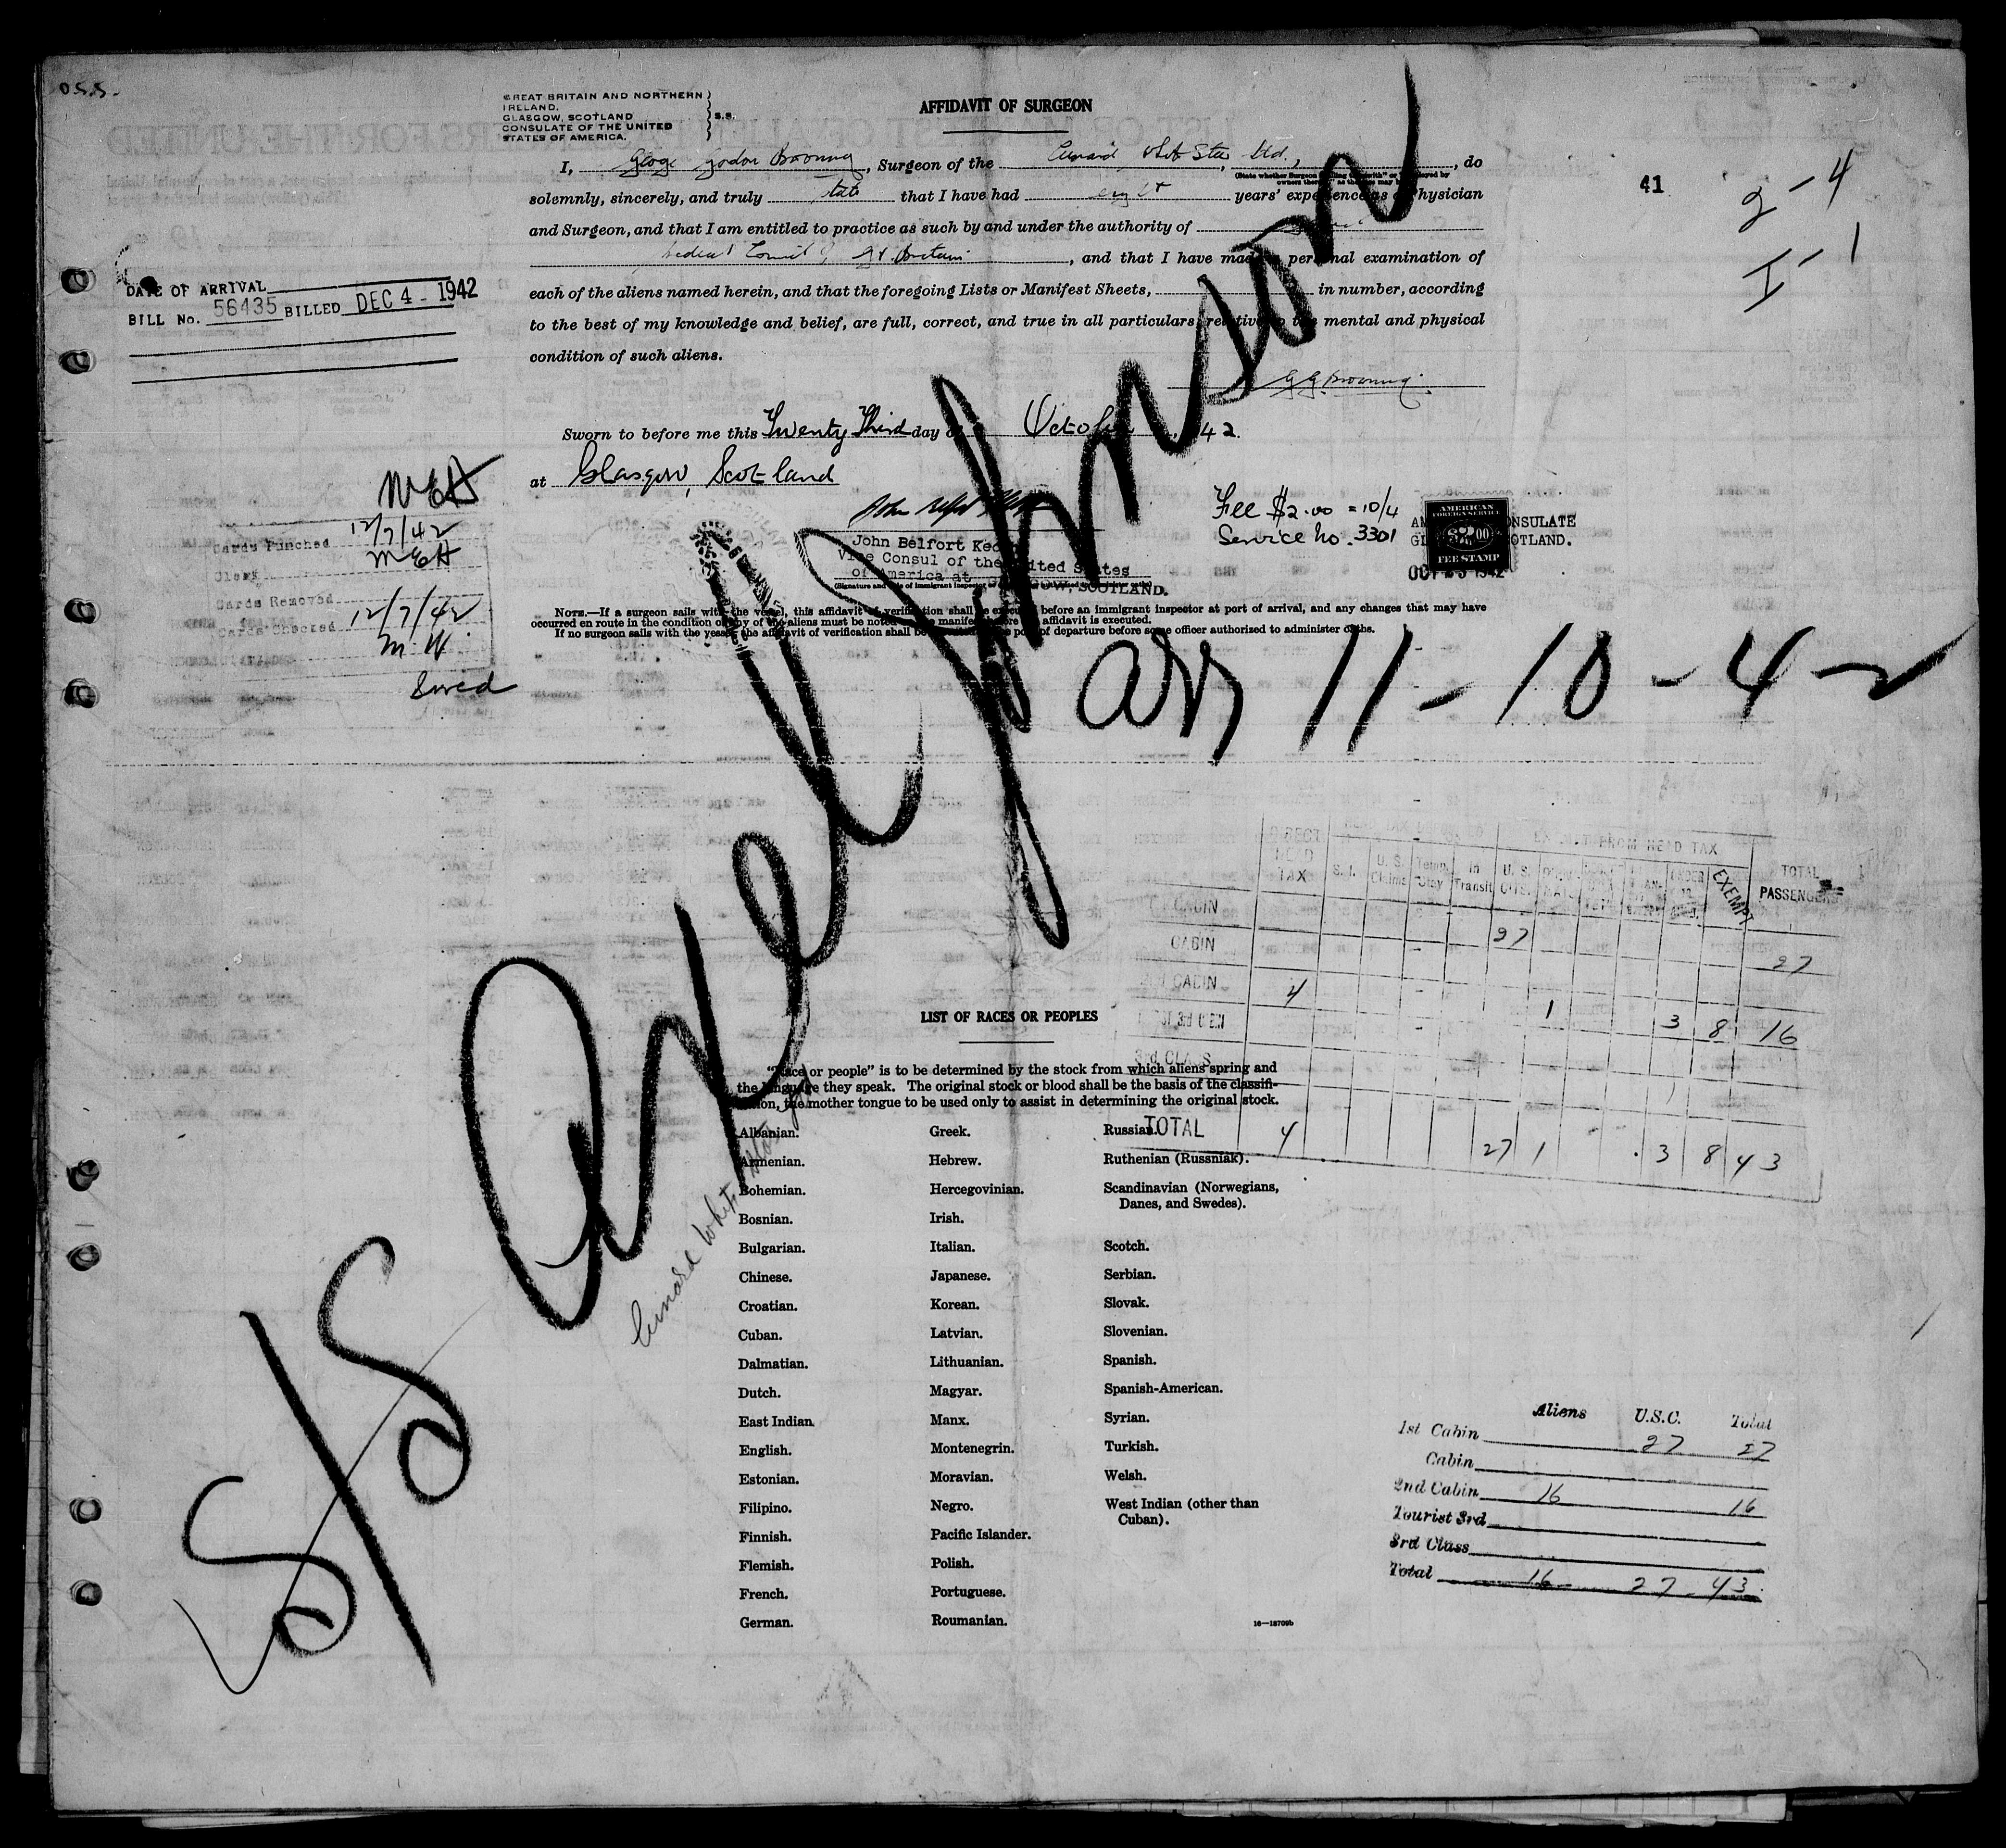 O.S.S.
GREAT BRITAIN AND NORTHERN
IRELAND.
GLASGOW, SCOTLAND
CONSULATE OF THE UNITED
STATES OF AMERICA.
S.S.
AFFIDAVIT OF SURGEON
I, George Gordon, Surgeon of the Cunard White Star Ltd., do
(State whether Surgeon
solemnly, sincerely, and truly state that I have had eight years' experience as a Physician
and Surgeon, and that I am entitled to practice as such by and under the authority of
Medical Council of Gt. Britain, and that I have made a personal examination of
each of the aliens named herein, and that the foregoing Lists or Manifest Sheets, in number, according
to the best of my knowledge and belief, are full, correct, and true in all particulars relative to the mental and physical
condition of such aliens.
41
2-4
I-1
DATE OF ARRIVAL
BILL No. 56435 BILLED DEC 4 - 1942
Sworn to before me this Twenty Third day of October, 42.
at Glasgow, Scotland
John Belfort Keogh
Vice Consul of the United States
of America at GLASGOW, SCOTLAND.
Fee $2.00 = 10/4
Service No. 3301
AMERICAN CONSULATE
GLASGOW, SCOTLAND.
OCT 23 1942
AMERICAN
FOREIGN SERVICE
$2.00
FEE STAMP
MEH
Cards Punched 12/7/42
Clerk MEH
Cards Removed
Cards Checked 12/7/42
M.W.
Swed
NOTE.—If a surgeon sails with the vessel, this affidavit of verification shall be executed before an immigrant inspector at port of arrival, and any changes that may have
occurred en route in the condition of any of the aliens must be noted on the manifest before the affidavit is executed.
If no surgeon sails with the vessel the affidavit of verification shall be executed at the port of departure before some officer authorized to administer oaths.
S/S Axel Johnson
arr 11-10-42
Cunard White Star
DIRECT HEAD TAX
S.I.
U.S. Claims
Temp. Stay
In Transit
U.S. CITS.
EXEMPT FROM HEAD TAX
EXEMPT
TOTAL PASSENGERS
CABIN 27 27
CABIN 4 1 3 8 16
3rd CLASS
TOTAL 4 27 1 3 8 43
LIST OF RACES OR PEOPLES
"Race or people" is to be determined by the stock from which aliens spring and
the language they speak. The original stock or blood shall be the basis of the classifi-
cation, the mother tongue to be used only to assist in determining the original stock.
Albanian.
Armenian.
Bohemian.
Bosnian.
Bulgarian.
Chinese.
Croatian.
Cuban.
Dalmatian.
Dutch.
East Indian.
English.
Estonian.
Filipino.
Finnish.
Flemish.
French.
German.
Greek.
Hebrew.
Hercegovinian.
Irish.
Italian.
Japanese.
Korean.
Latvian.
Lithuanian.
Magyar.
Manx.
Montenegrin.
Moravian.
Negro.
Pacific Islander.
Polish.
Portuguese.
Roumanian.
Russian.
Ruthenian (Russniak).
Scandinavian (Norwegians,
Danes, and Swedes).
Scotch.
Serbian.
Slovak.
Slovenian.
Spanish.
Spanish-American.
Syrian.
Turkish.
Welsh.
West Indian (other than
Cuban).
16—18709b
Aliens U.S.C. Total
1st Cabin 27 27
Cabin
2nd Cabin 16 16
Tourist 3rd
3rd Class
Total 16 27 43